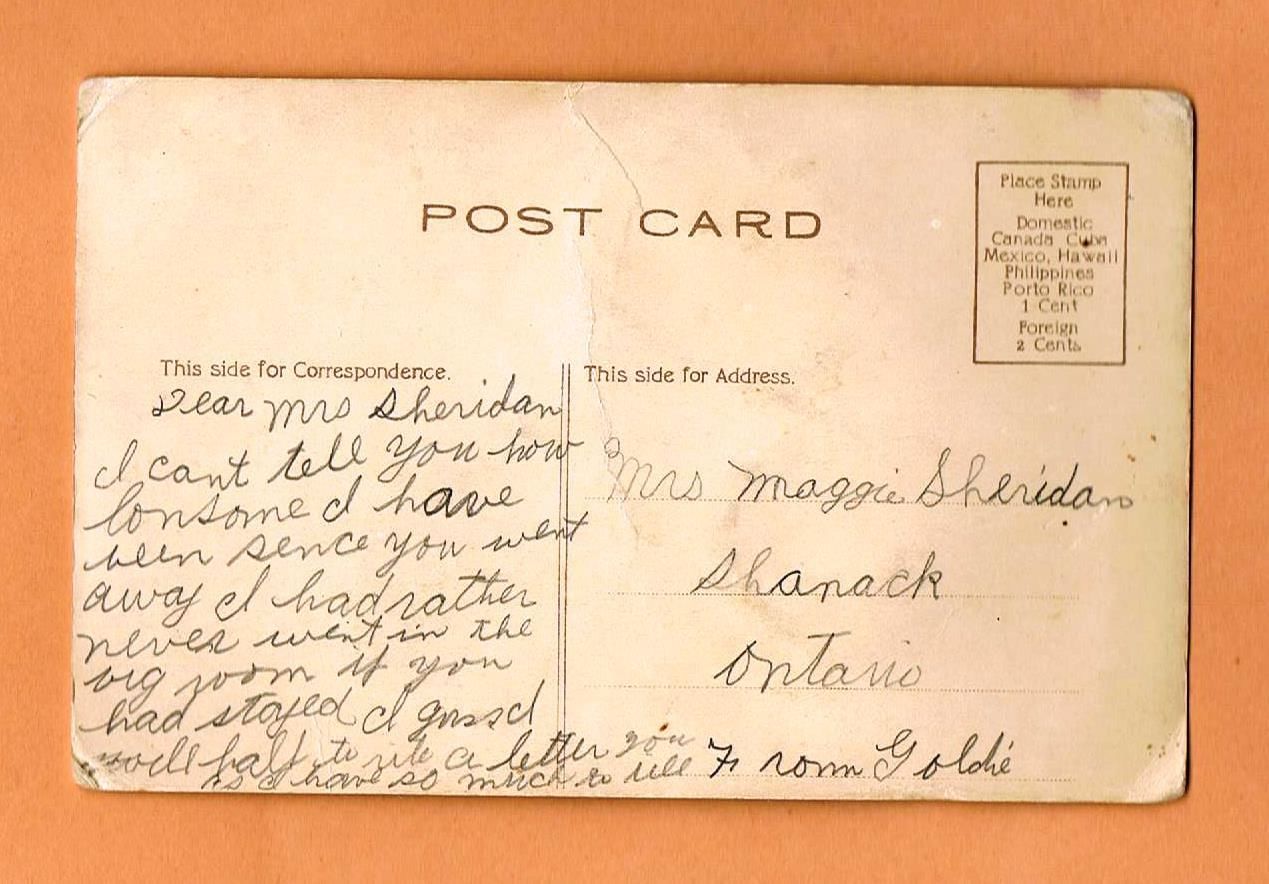 POST CARD
Place Stamp
Here
Domestic
Canada Cuba
Mexico, Hawaii
Philippines
Porto Rico
1 Cent
Foreign
2 Cents
This side for Correspondence.
Dear Mrs Sheridan
I cant tell you how
lonsome I have
been sence you went
away I had rather
never went in the
big room if you
had stayed I guss I
will half to rite a letter
as I have so much to tell you
This side for Address.
Mrs Maggie Sheridan
Shanack
Ontario
From Goldie